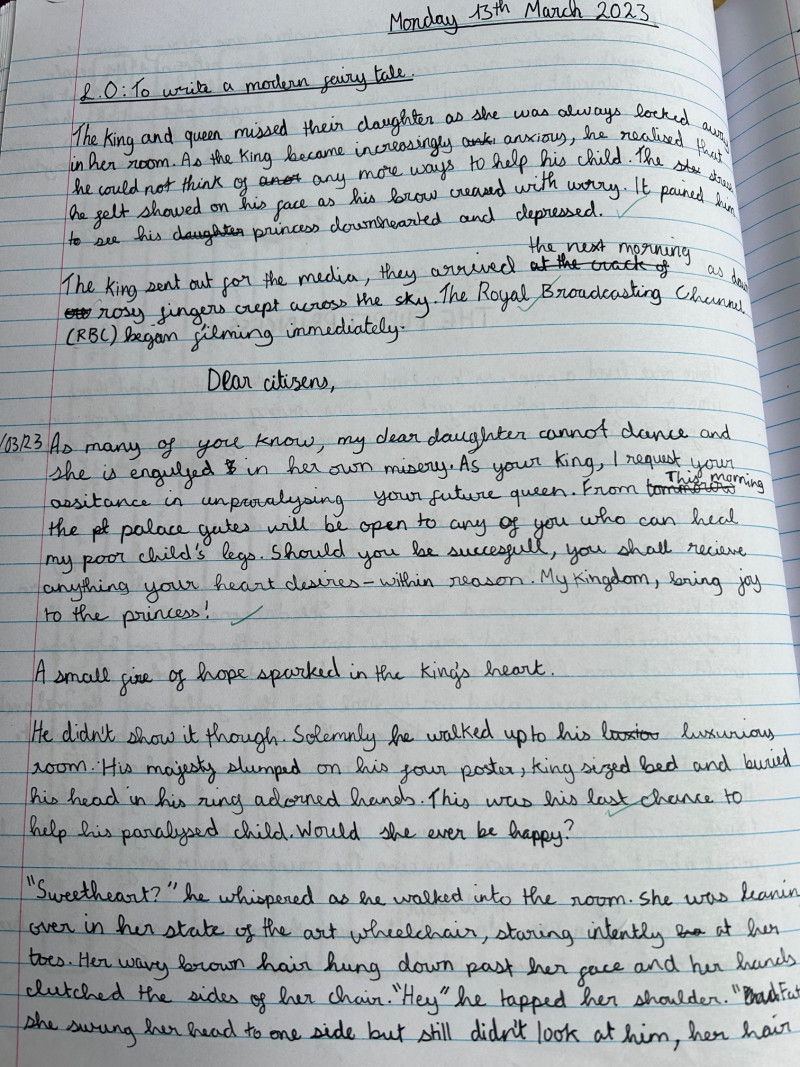 Monday 13th March 2023
L.O: To write a modern fairy tale.
The King and queen missed their daughter as she was always locked away
in her room. As the King became increasingly anxious, he realised that
he could not think of any more ways to help his child. The stress
he felt showed on his face as his brow creased with worry. It pained him
to see his daughter princess downhearted and depressed.
the next morning
The King sent out for the media, they arrived at the crack of as dawn
rosy fingers crept across the sky. The Royal Broadcasting Channel
(RBC) began filming immediately.
Dear citizens,
/03/23 As many of you know, my dear daughter cannot dance and
she is engulfed in her own misery. As your King, I request your
This morning
assitance in unparalysing your future queen. From tommorow
the palace gates will be open to any of you who can heal
my poor child's legs. Should you be succesfull, you shall recieve
anything your heart desires - within reason. My Kingdom, bring joy
to the princess!
A small fire of hope sparked in the King's heart.
He didn't show it though. Solemnly he walked up to his luxurious
room. His majesty slumped on his four poster, king sized bed and buried
his head in his ring adorned hands. This was his last chance to
help his paralysed child. Would she ever be happy?
"Sweetheart?" he whispered as he walked into the room. She was leanin
over in her state of the art wheelchair, staring intently at her
toes. Her wavy brown hair hung down past her face and her hands
clutched the sides of her chair. "Hey" he tapped her shoulder. "
she swung her head to one side but still didn't look at him, her hair